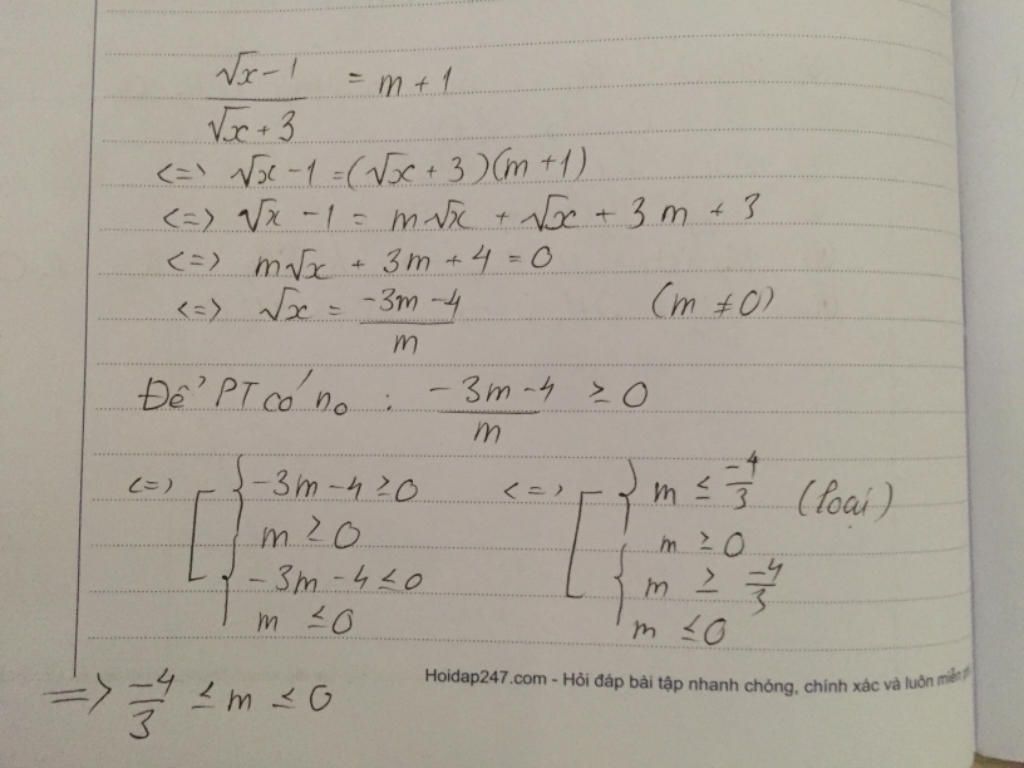 √x - 1 / √x + 3 = m + 1
<=> √x - 1 = (√x + 3)(m + 1)
<=> √x - 1 = m√x + √x + 3m + 3
<=> m√x + 3m + 4 = 0
<=> √x = -3m - 4 / m (m ≠ 0)
Để PT có n₀ : -3m - 4 / m ≥ 0
<=> [ { -3m - 4 ≥ 0 <=> [ { m ≤ -4/3 (loại)
m ≥ 0 m ≥ 0
{ -3m - 4 ≤ 0 { m ≥ -4/3
m ≤ 0 m ≤ 0
Hoidap247.com - Hỏi đáp bài tập nhanh chóng, chính xác và luôn miễn
=> -4/3 ≤ m ≤ 0